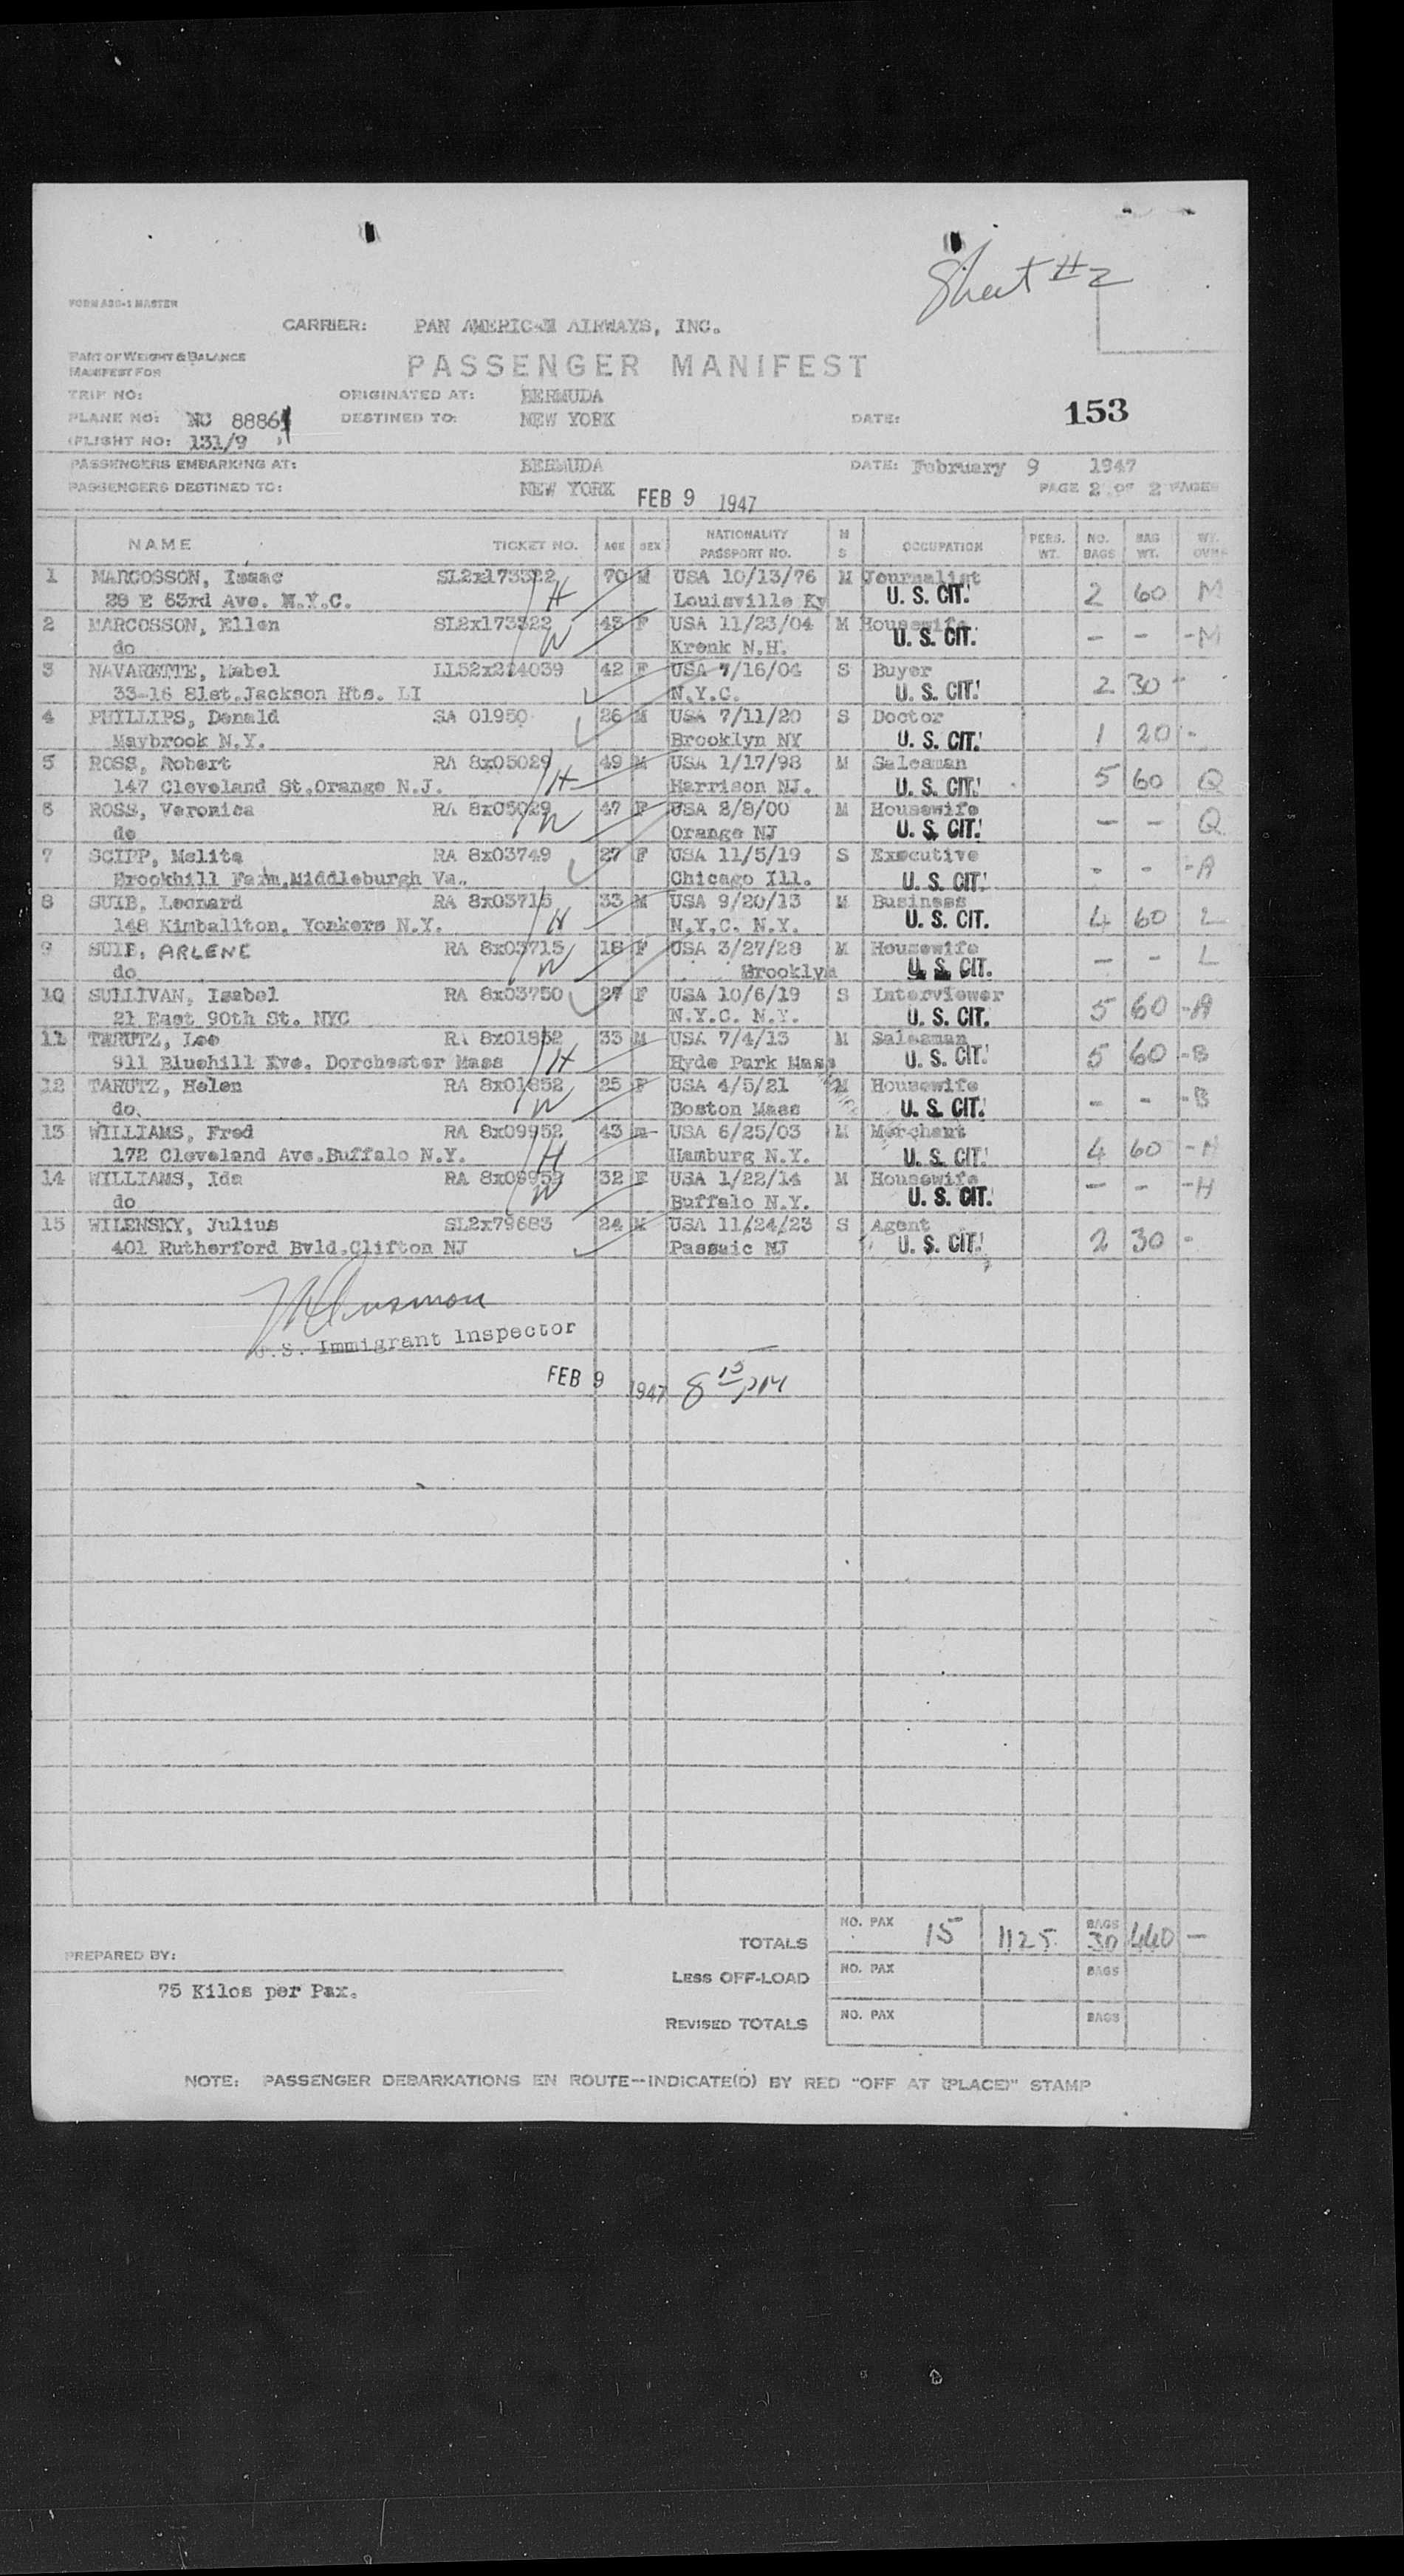 Sheet #2
FORM A30-1 MASTER
CARRIER: PAN AMERICAN AIRWAYS, INC.
PART OF WEIGHT & BALANCE
MANIFEST FOR
PASSENGER MANIFEST
TRIP NO: ORIGINATED AT: BERMUDA
PLANE NO: NC 8886 DESTINED TO: NEW YORK DATE: 153
(FLIGHT NO: 131/9 )
PASSENGERS EMBARKING AT: BERMUDA DATE: February 9 1947
PASSENGERS DESTINED TO: NEW YORK FEB 9 1947 PAGE 2 OF 2 PAGES
NAME TICKET NO. AGE SEX NATIONALITY PASSPORT NO. M S OCCUPATION PERS. WT. NO. BAGS BAG WT. WT.
1 MARCOSSON, Isaac SL2x173522 H 70 M USA 10/13/76 M Journalist
28 E 63rd Ave. N.Y.C. Louisville Ky U. S. CIT. 2 60 M
2 MARCOSSON, Ellen SL2x173522 W 43 F USA 11/23/04 M Housewife
do Kronk N.H. U. S. CIT. - - -M
3 NAVARETTE, Mabel LL52x224039 42 F USA 7/16/04 S Buyer
33-16 81st.Jackson Hts. LI N.Y.C. U. S. CIT. 2 30 -
4 PHILLIPS, Donald SA 01950 26 M USA 7/11/20 S Doctor
Maybrook N.Y. Brooklyn NY U. S. CIT. 1 20 -
5 ROSS, Robert RA 8x05029 H 49 M USA 1/17/98 M Salesman
147 Cleveland St.Orange N.J. Harrison NJ. U. S. CIT. 5 60 Q
6 ROSS, Veronica RA 8x05029 W 47 F USA 2/8/00 M Housewife
do Orange NJ U. S. CIT. - - Q
7 SCIPP, Melita RA 8x03749 27 F USA 11/5/19 S Executive
Brookhill Farm,Middleburgh Va. Chicago Ill. U. S. CIT. - - -A
8 SUIB, Leonard RA 8x03715 H 33 M USA 9/20/13 M Business
148 Kimballton, Yonkers N.Y. N.Y.C. N.Y. U. S. CIT. 4 60 L
9 SUIB, ARLENE RA 8x03715 W 18 F USA 3/27/28 M Housewife
do Brooklyn U. S. CIT. - - L
10 SULLIVAN, Isabel RA 8x03750 27 F USA 10/6/19 S Interviewer
21 East 90th St. NYC N.Y.C. N.Y. U. S. CIT. 5 60 -A
11 TARUTZ, Leo RA 8x01852 H 33 M USA 7/4/13 M Salesman
911 Bluehill Ave. Dorchester Mass Hyde Park Mass U. S. CIT. 5 60 -B
12 TARUTZ, Helen RA 8x01852 W 25 F USA 4/5/21 M Housewife
do. Boston Mass U. S. CIT. - - -B
13 WILLIAMS, Fred RA 8x09952 H 43 m USA 6/25/03 M Merchant
172 Cleveland Ave.Buffalo N.Y. Hamburg N.Y. U. S. CIT. 4 60 -H
14 WILLIAMS, Ida RA 8x09952 W 32 F USA 1/22/14 M Housewife
do Buffalo N.Y. U. S. CIT. - - -H
15 WILENSKY, Julius SL2x79683 24 M USA 11/24/23 S Agent
401 Rutherford Bvld.Clifton NJ Passaic NJ U. S. CIT. 2 30 -
U.S. Immigrant Inspector
FEB 9 1947 8 15 PM
TOTALS NO. PAX 15 1125 BAGS 30 440 -
PREPARED BY:
LESS OFF-LOAD NO. PAX BAGS
75 Kilos per Pax.
REVISED TOTALS NO. PAX BAGS
NOTE: PASSENGER DEBARKATIONS EN ROUTE--INDICATE(D) BY RED "OFF AT (PLACE)" STAMP